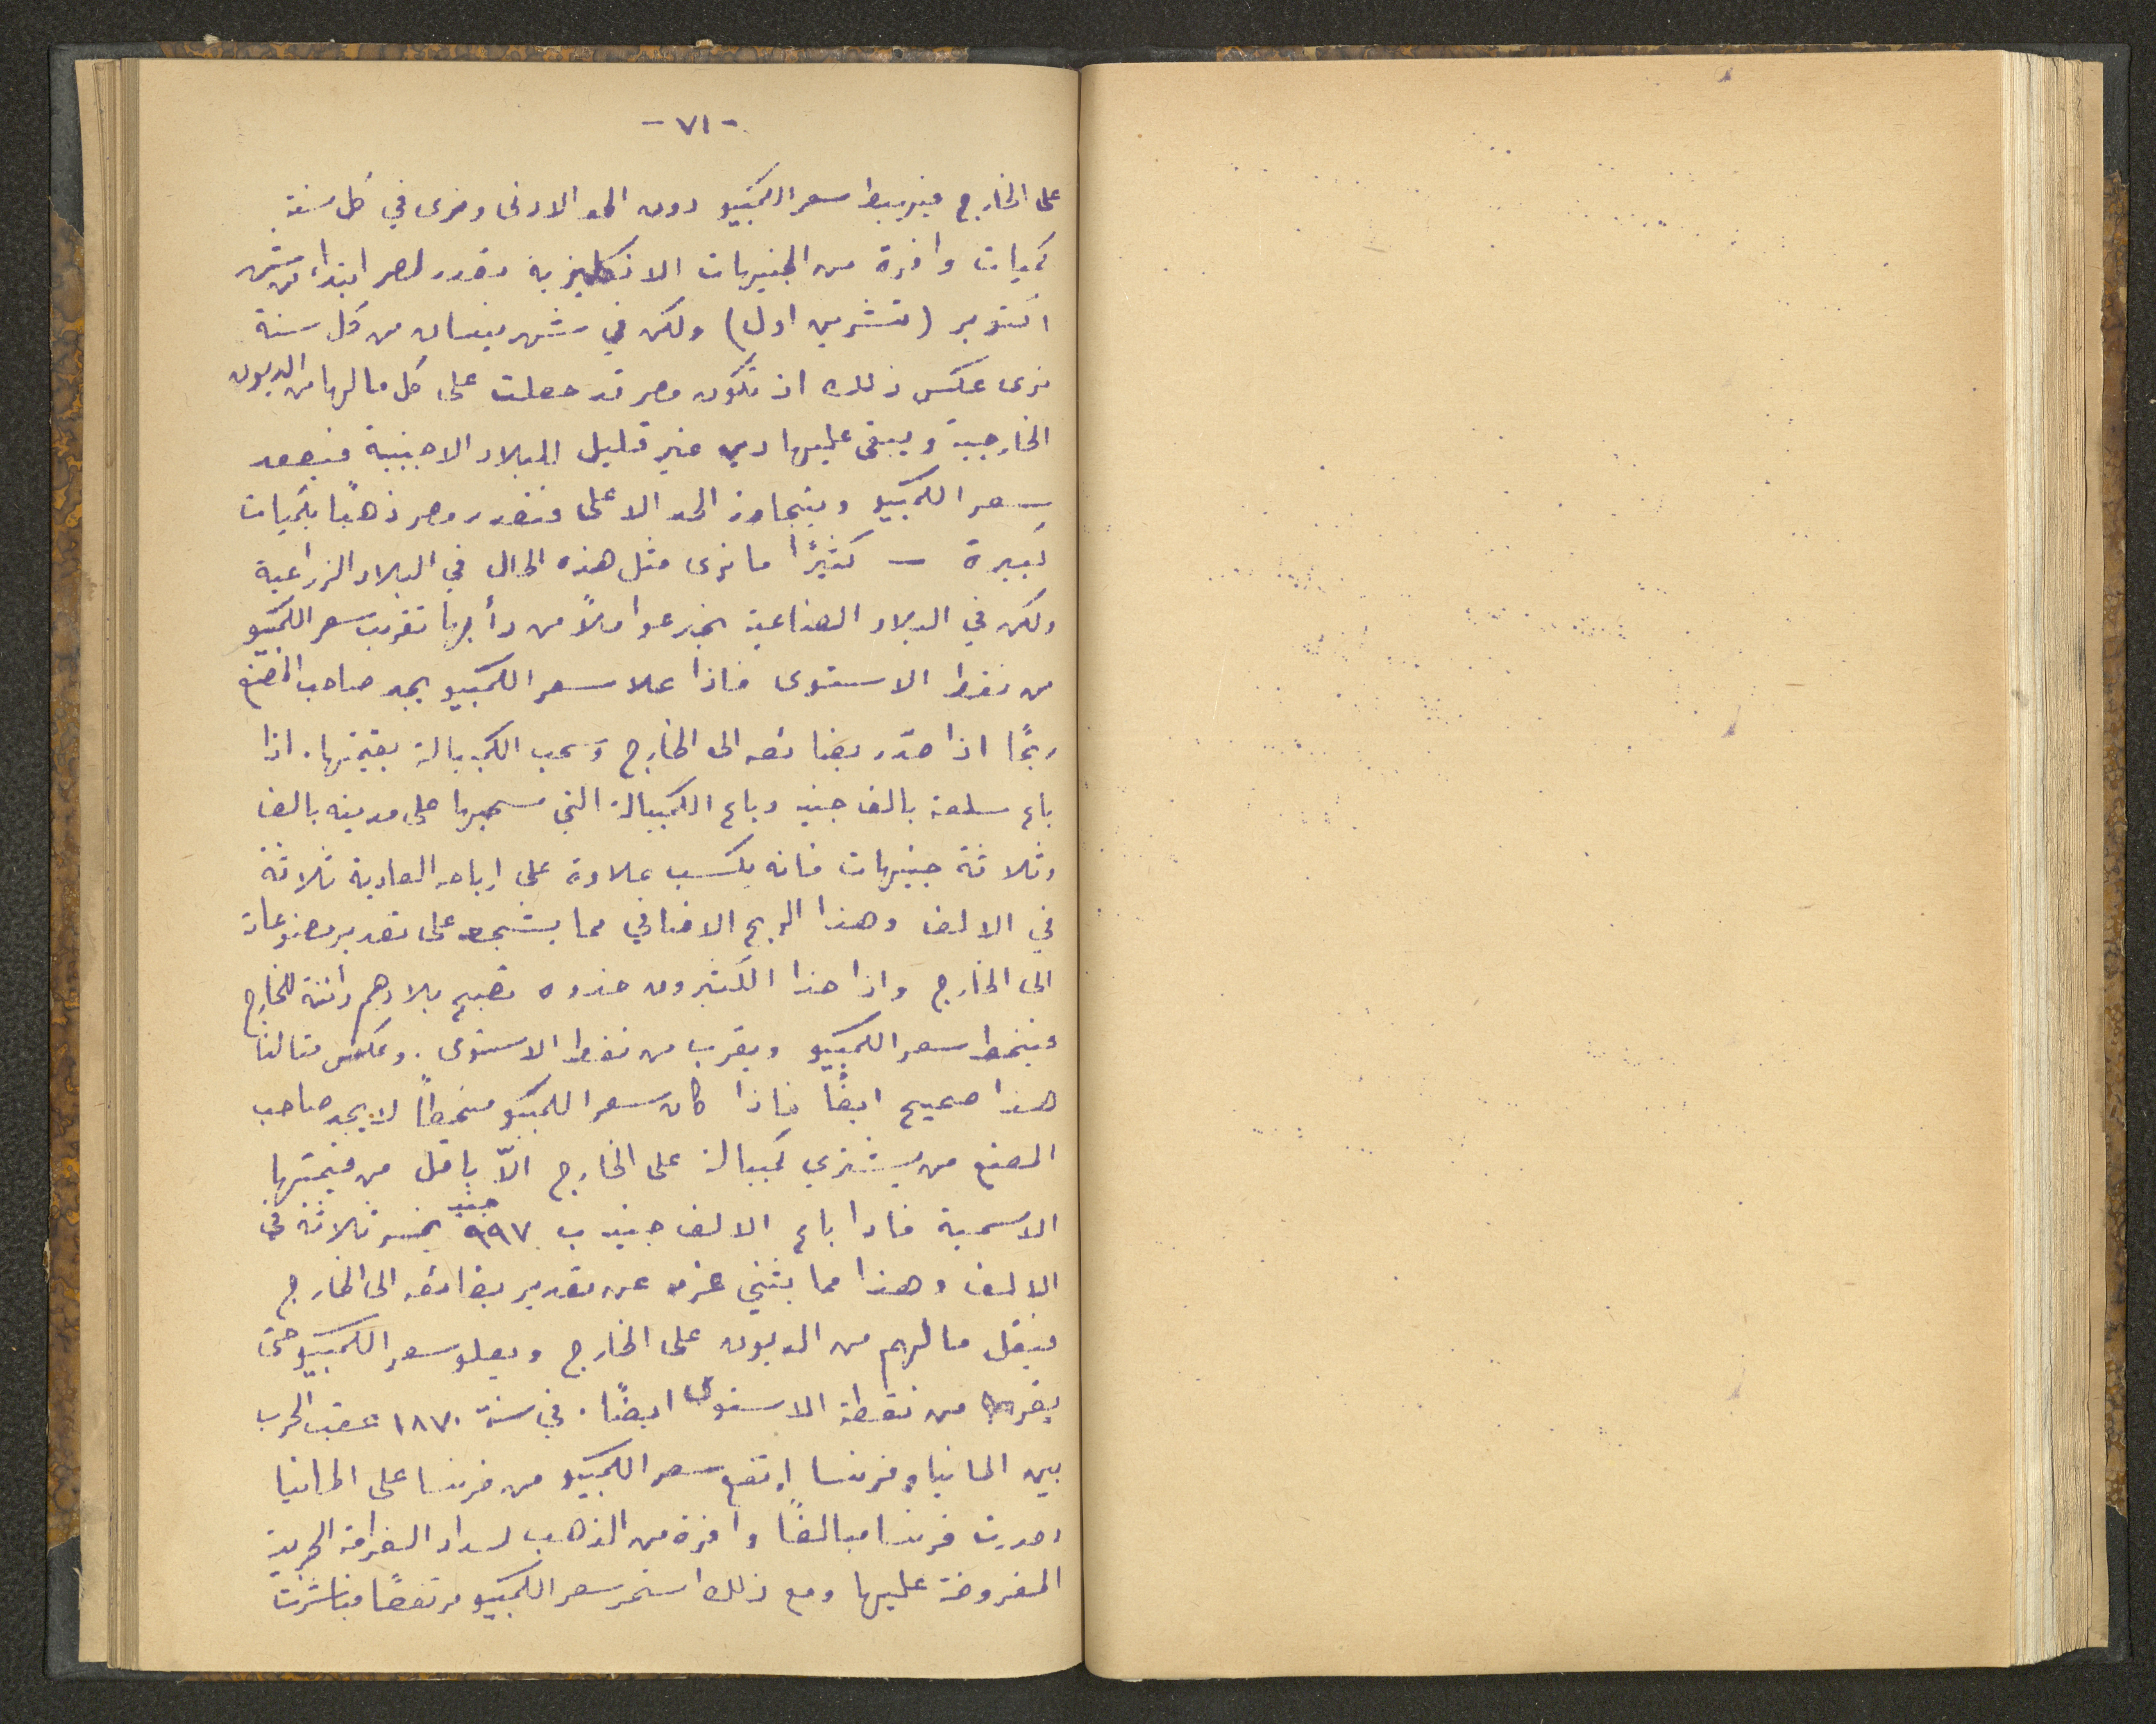 -٧١-
على الخارج فيهبط سعر الكمبيو دون الحد الادنى ونرى في كل سنة
كميات وافرة من الجنيهات الانكليزية تصدر لمصر ابتداء من شهر
اكتوبر (تشرين اول) ولكن في شهر نيسان من كل سنة
نرى عكس ذلك اذ تكون مصر قد حصلت على كل ما لها من الديون
الخارجية ويبقى عليها دين غير قليل للبلاد الاجنبية فيصعد
سعر الكمبيو ويتجاوز الحد الاعلى فتصدر مصر ذهبًا بكميات
كبيرة — كثيرًا ما نرى مثل هذه الحال في البلاد الزراعية
ولكن في البلاد الصناعية نجد عواملاً من دأبها تقريب سعر الكمبيو
من نقط الاستوى فاذا علا سعر الكمبيو يجد صاحب المصنع
ربحًا اذا صدّر بضائعه الى الخارج وسحب الكمبيالة بقيمتها. اذا
باع سلعة بالف جنيه وباع الكمبيالة التي سحبها على مدينه بالف
وثلاثة جنيهات فانه يكسب علاوة على ارباحه العادية ثلاثة
في الالف وهذا الربح الاضافي مما يشجعه على تصدير مصنوعاته
الى الخارج واذا حذا الكثيرون حذوه تصبح بلادهم دائنة للخارج
فينحط سعر الكمبيو ويقرب من نقط الاستوى. وعكس مثالنا
هذا صحيح ايضًا فاذا كان سعر الكمبيو منحطاً لا يجد صاحب
المصنع من يشتري كمبيالة على الخارج الاّ باقل من قيمتها
الاسمية فاذا باع الالف جنيه ب ٩٩٧ جنيه يخسر ثلاثة في
الالف وهذا مما يثني عزمه عن تصدير بضائعه الى الخارج
فيقل مالهم من الديون على الخارج ويعلو سعر الكمبيو حتى
يقرب من نقطة الاستوى ايضًا. في سنة ١٨٧٠ عقب الحرب
بين المانيا وفرنسا ارتفع سعر الكمبيو من فرنسا على المانيا
اصدرت فرنسا مبالغًا وافرة من الذهب لسداد الغرامة الحربية
المفروضة عليها ومع ذلك استمر سعر الكمبيو مرتفعًا